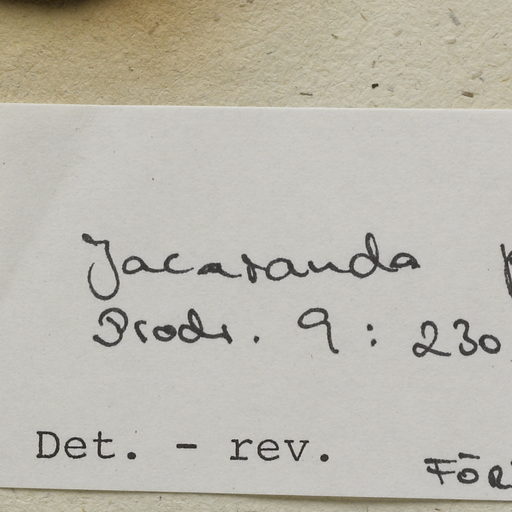 Jacaranda
Prodr. 9: 230
Det. - rev.